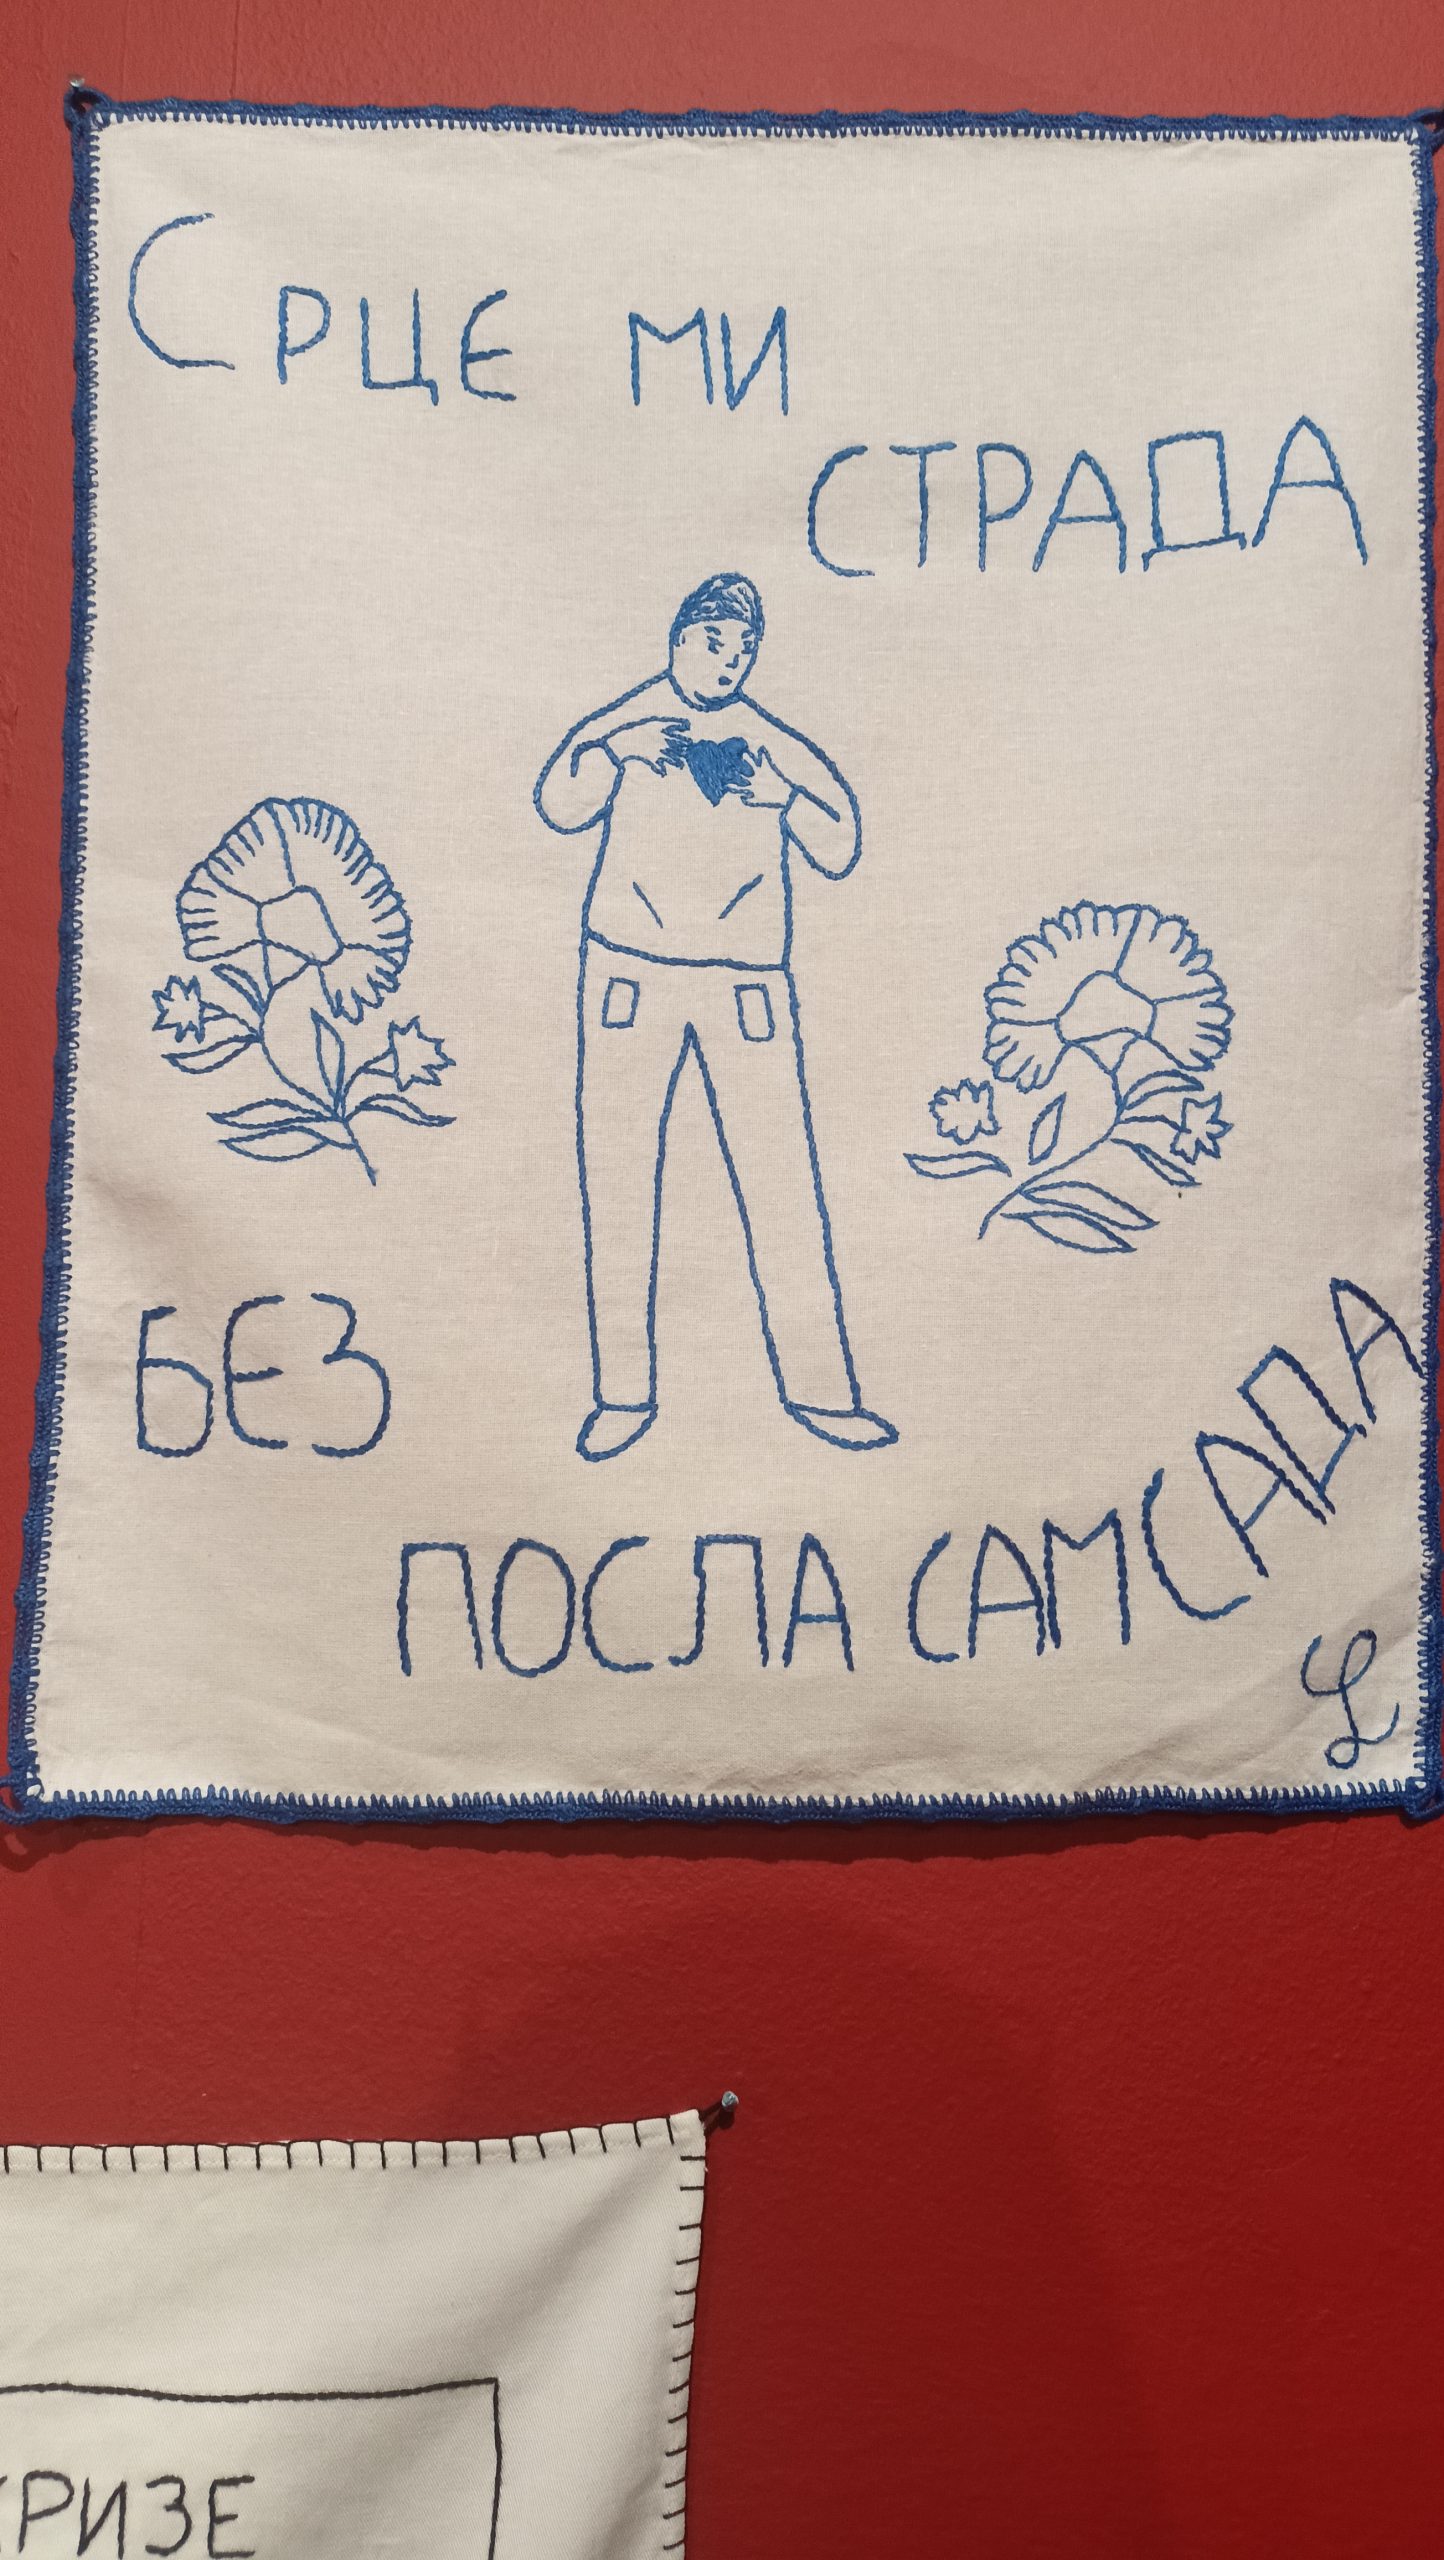 СРЦЕ МИ
СТРАДА
БЕЗ
ПОСЛА САМ САДА
L
КРИЗЕ